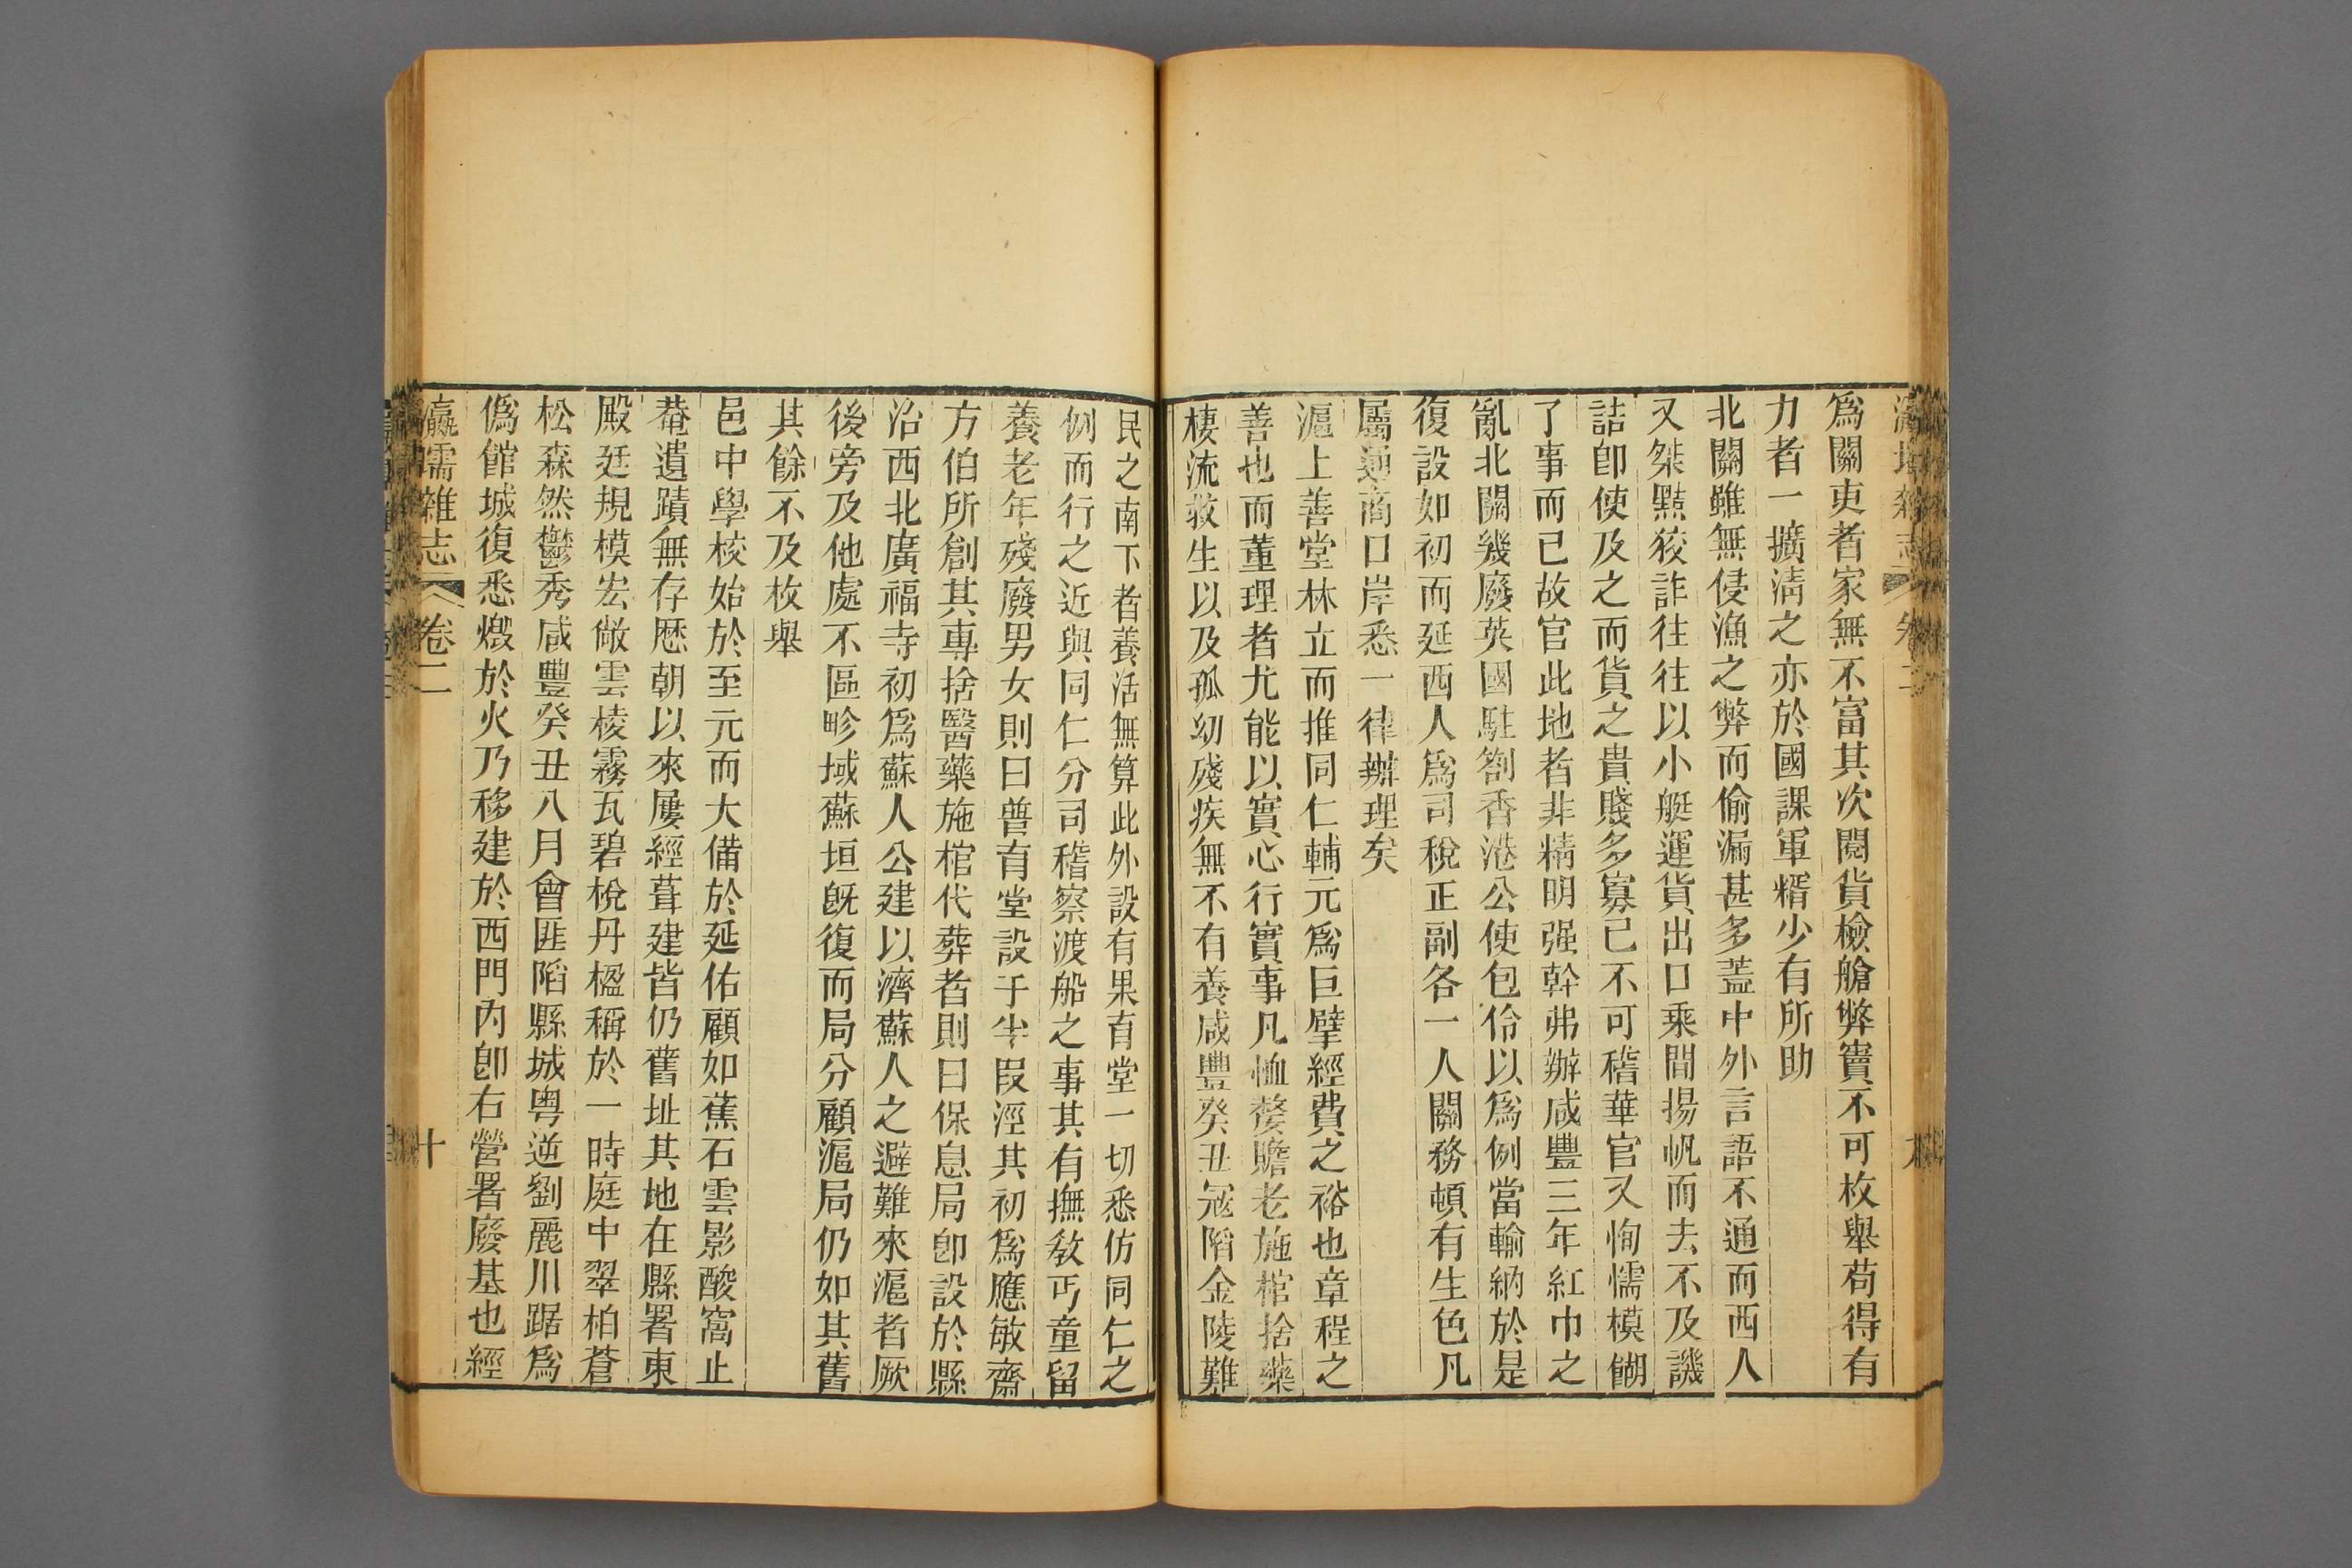 爲關吏者家無不富其次閱貨檢艙弊竇不可枚舉苟得有
力者一擴淸之亦於國課軍糈少有所助
北關雖無侵漁之弊而偷漏甚多葢中外言語不通而西人
又桀黠狡詐往往以小艇運貨出口乘間揚帆而去不及譏
詰卽使及之而貨之貴賤多寡已不可稽華官又恂懦模餬
了事而已故官此地者非精明强幹弗辦咸豐三年紅巾之
亂北關幾廢英國駐劄香港公使包伶以爲例當輸納於是
復設如初而延西人爲司稅正副各一人關務頓有生色凡
屬通商口岸悉一律辦理矣
滬上善堂林立而推同仁輔元爲巨擘經費之裕也章程之
善也而董理者尤能以實心行實事凡恤嫠贍老施棺捨藥
棲流救生以及孤幼殘疾無不有養咸豐癸丑寇陷金陵難
民之南下者養活無算此外設有果育堂一切悉仿同仁之
例而行之近與同仁分司稽察渡船之事其有撫敎丐童留
養老年殘廢男女則曰普育堂設于半叚涇其初爲應敏齋
方伯所創其專捨醫藥施棺代葬者則曰保息局卽設於縣
治西北廣福寺初爲蘇人公建以濟蘇人之避難來滬者厥
後旁及他處不區畛域蘇垣旣復而局分顧滬局仍如其舊
其餘不及枚舉
邑中學校始於至元而大備於延佑顧如蕉石雲影酸窩止
菴遺蹟無存歷朝以來屢經葺建皆仍舊址其地在縣署東
殿廷規模宏敞雲棱霧瓦碧梲丹楹稱於一時庭中翠柏蒼
松森然鬱秀咸豐癸丑八月會匪陷縣城粤逆劉麗川踞爲
僞館城復悉燬於火乃移建於西門內卽右營署廢基也經
瀛壖雜志 卷二 十